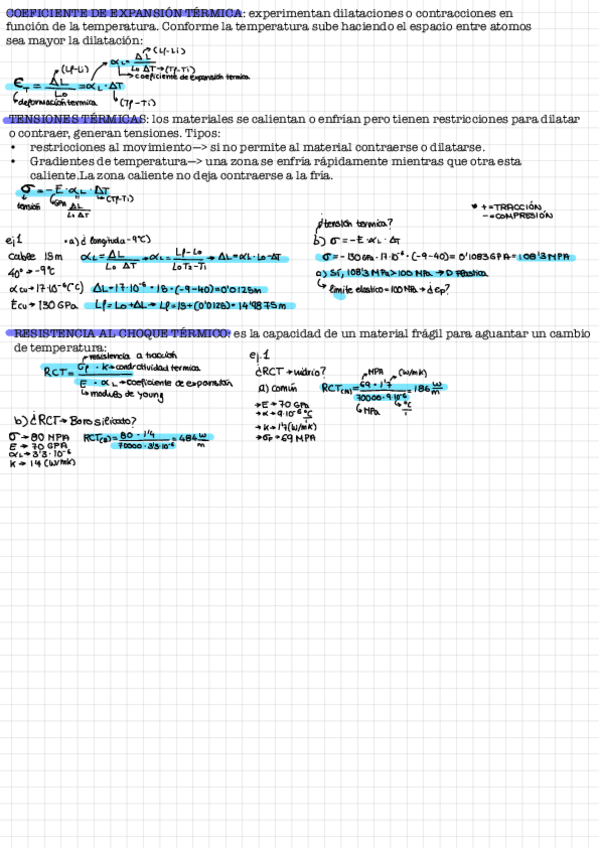 COEFICIENTE DE EXPANSIÓN TÉRMICA: experimentan dilataciones o contracciones en
función de la temperatura. Conforme la temperatura sube haciendo el espacio entre atomos
sea mayor la dilatación:
(Lf-Li)
αL = ΔL / L0 ΔT → (Tf-Ti)
coeficiente de expansión termica
(Lf-Li)
ЄT = ΔL / L0 = αL · ΔT
deformación termica
(Tf-Ti)
TENSIONES TÉRMICAS: los materiales se calientan o enfrían pero tienen restricciones para dilatar
o contraer, generan tensiones. Tipos:
• restricciones al movimiento—> si no permite al material contraerse o dilatarse.
• Gradientes de temperatura—> una zona se enfría rápidamente mientras que otra esta
caliente.La zona caliente no deja contraerse a la fría.
σ = - E · αL · ΔT
(Tf-Ti)
tensión
GPA
ΔL / L0 ΔT
* + = TRACCIÓN
- = COMPRESIÓN
ej 1 · a) ¿ longitud a -9°C)
cable 15m αL = ΔL / L0 ΔT → αL = Lf-L0 / L0 T2-T1 → ΔL = αL · L0 · ΔT
40° → -9°C
αcu = 17·10⁻⁶ (°C) ΔL = 17·10⁻⁶ · 15 · (-9-40) = 0'0125m
Ecu → 130 GPa Lf = L0 + ΔL → Lf = 15 + (0'0125) = 14'9875m
¿tensión termica?
b) σ = - E · αL · ΔT
σ = - 130 GPa · 17·10⁻⁶ · (-9-40) = 0'1083 GPA = 108'3 MPA
a) Sí, 108'3 MPa > 100 MPa → D Plástica
limite elastico = 100 MPa → ¿ep?
RESISTENCIA AL CHOQUE TÉRMICO: es la capacidad de un material frágil para aguantar un cambio
de temperatura:
resistencia a tracción
RCT = σf · K → conductividad termica
E · αL → coeficiente de expansión
modulo de young
ej. 1
¿RCT → vidrio?
a) común
→ E → 70 GPa
→ α → 9·10⁻⁶ °C
→ K → 1'7 (W/mK)
→ σF → 69 MPA
MPA (W/mK)
RCT(N) = 69 · 1'7 / 70000 · 9·10⁻⁶ = 186 W/m
MPa
b) ¿RCT → Borosilicado?
σ → 80 MPA
E → 70 GPA
αL → 3'3·10⁻⁶
K → 1'4 (W/mK)
RCT(B) = 80 · 1'4 / 70000 · 3'3·10⁻⁶ = 484 W/m